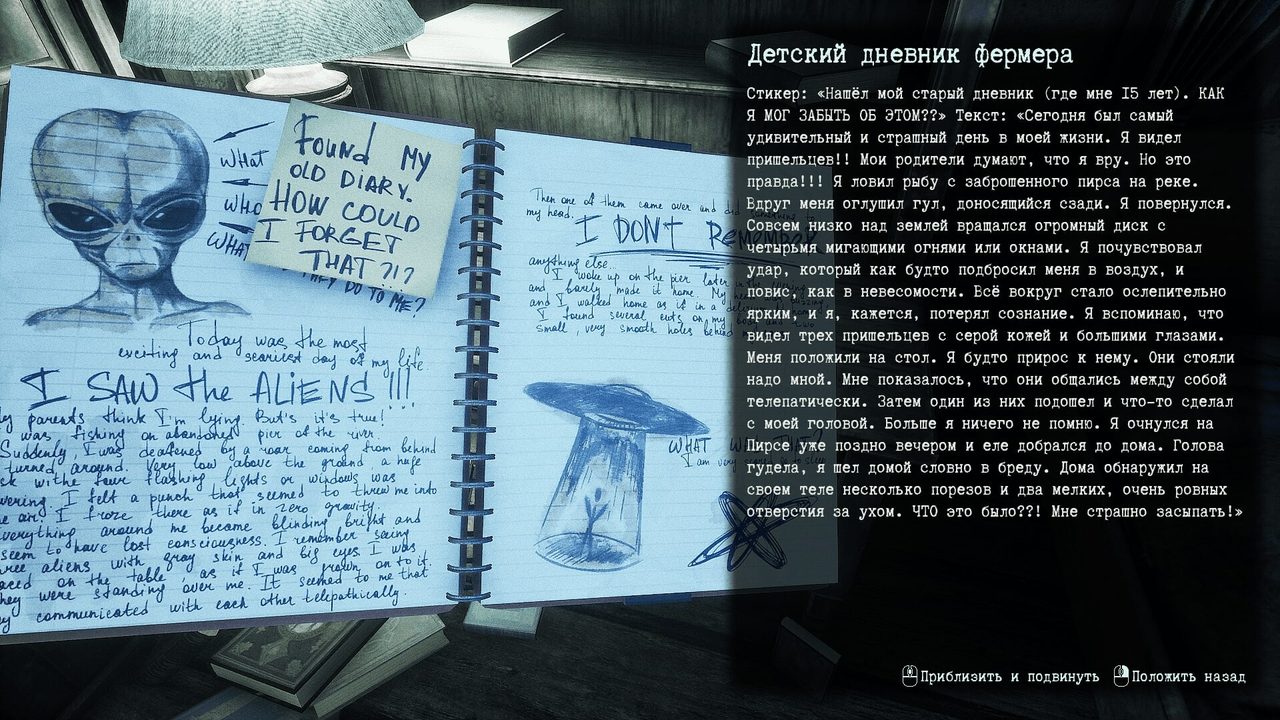 WHAT
WHO
WHAT
FOUND MY
OLD DIARY.
HOW COULD
I FORGET
THAT?!?
THEY DO TO ME?
Today was the most
exciting and scariest day of my life
I SAW the ALIENS !!!
my parents think I'm lying But's it's true!
was fishing on abandoned pier of the river.
Suddenly, I was deafened by a roar coming from behind
turned around. Very low above the ground a huge
sk withe four flashing lights or windows was
wering I felt a punch that seemed to threw me into
he air! I froze there as if in zero gravity.
Everything around me became blinding bright and
seem to have lost consciousness. I remember seeing
three aliens with gray skin and big eyes I was
aced on the table as if I was grown on to it.
They were standing over me. It seemed to me that
ey communicated with each other telepathically.
Then one of them came over and did something to
my head.
I DON'T REMEMBER
anything else.
I woke up on the pier later in the
and barely made it home. My head
and I walked home as if in a
I found several cuts on my body and two
small, very smooth holes behind
WHAT WAS THAT?
I am very scared to sleep
Детский дневник фермера
Стикер: «Нашёл мой старый дневник (где мне 15 лет). КАК
Я МОГ ЗАБЫТЬ ОБ ЭТОМ??» Текст: «Сегодня был самый
удивительный и страшный день в моей жизни. Я видел
пришельцев!! Мои родители думают, что я вру. Но это
правда!!! Я ловил рыбу с заброшенного пирса на реке.
Вдруг меня оглушил гул, доносящийся сзади. Я повернулся.
Совсем низко над землей вращался огромный диск с
четырьмя мигающими огнями или окнами. Я почувствовал
удар, который как будто подбросил меня в воздух, и
повис, как в невесомости. Всё вокруг стало ослепительно
ярким, и я, кажется, потерял сознание. Я вспоминаю, что
видел трех пришельцев с серой кожей и большими глазами.
Меня положили на стол. Я будто прирос к нему. Они стояли
надо мной. Мне показалось, что они общались между собой
телепатически. Затем один из них подошел и что-то сделал
с моей головой. Больше я ничего не помню. Я очнулся на
Пирсе уже поздно вечером и еле добрался до дома. Голова
гудела, я шел домой словно в бреду. Дома обнаружил на
своем теле несколько порезов и два мелких, очень ровных
отверстия за ухом. ЧТО это было??! Мне страшно засыпать!»
Приблизить и подвинуть Положить назад